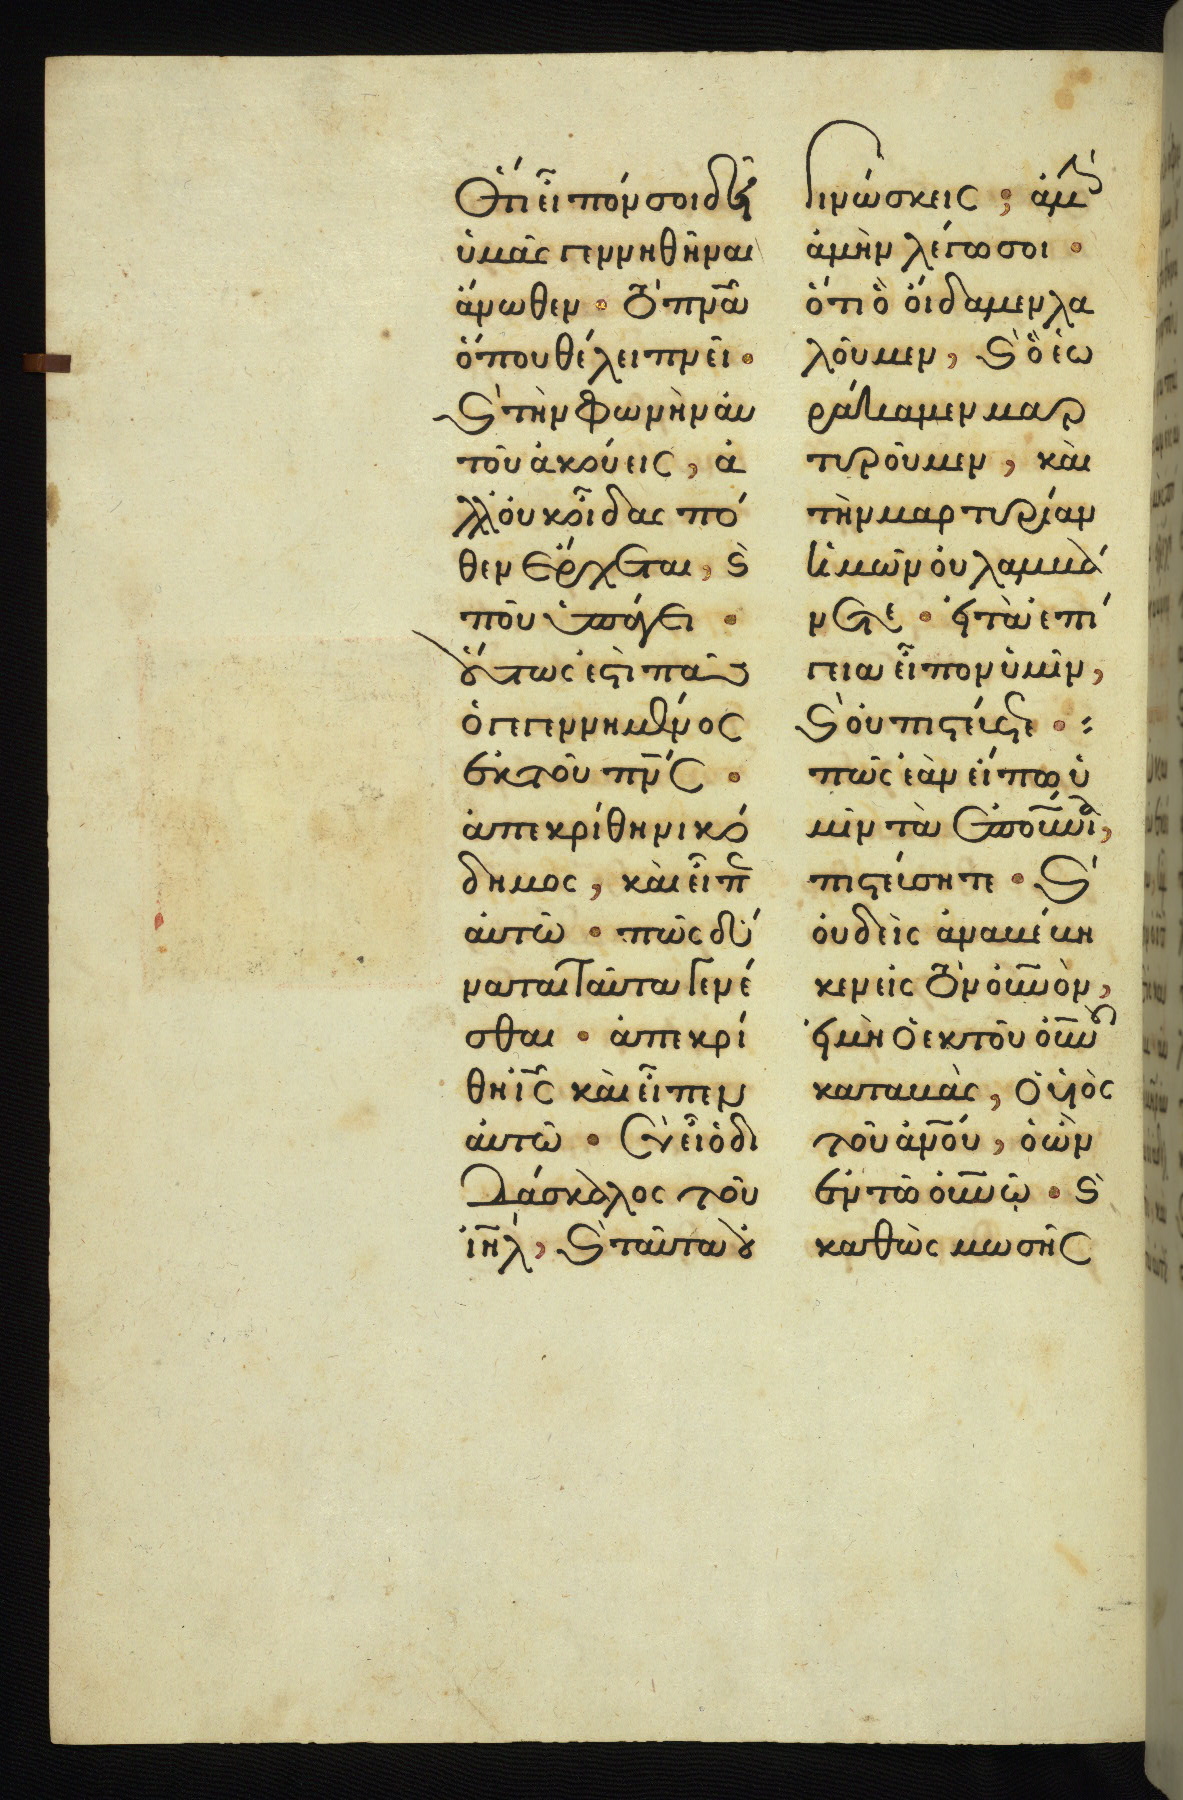 Ὅτι εἶπόν σοι δεῖ
ὑμᾶς γεννηθῆναι
ἄνωθεν · τὸ πνᾶ
ὅπου θέλει πνεῖ ·
ϗ τὴν φωνὴν αὐ
τοῦ ἀκούεις, ἀ
λλ' οὐκ οἶδας πό
θεν ἔρχεται, ϗ
ποῦ ὑπάγει ·
οὕτως ἐστὶ πᾶς
ὁ γεγεννημένος
ἐκ τοῦ πνς ·
ἀπεκρίθη νικό
δημος, καὶ εἶπεν
αὐτῶ · πῶς δύ
ναται ταῦτα γενέ
σθαι · ἀπεκρί
θη ἰς καὶ εἶπεν
αὐτῶ · Σὺ εἶ ὁ δι
δάσκαλος τοῦ
ιηλ, ϗ ταῦτα οὐ
γινώσκεις; ἀμὴν
ἀμὴν λέγω σοι ·
ὅτι ὃ οἴδαμεν λα
λοῦμεν, ϗ ὃ ἑω
ράκαμεν μαρ
τυροῦμεν, καὶ
τὴν μαρτυρίαν
ἡμῶν οὐ λαμβά
νετε · εἰ τὰ ἐπί
γεια εἶπον ὑμῖν,
ϗ οὐ πιστεύετε ·
πῶς ἐὰν εἴπω ὑ
μῖν τὰ ἐπουνια,
πιστεύσητε · ϗ
οὐδεὶς ἀναβέβη
κεν εἰς τὸν οὐνὸν,
εἰ μὴ ὁ ἐκ τοῦ οὐνοῦ
καταβὰς, ὁ υἱὸς
τοῦ ἀνου, ὁ ὢν
ἐν τῶ οὐνῶ · ϗ
καθὼς μωσῆς